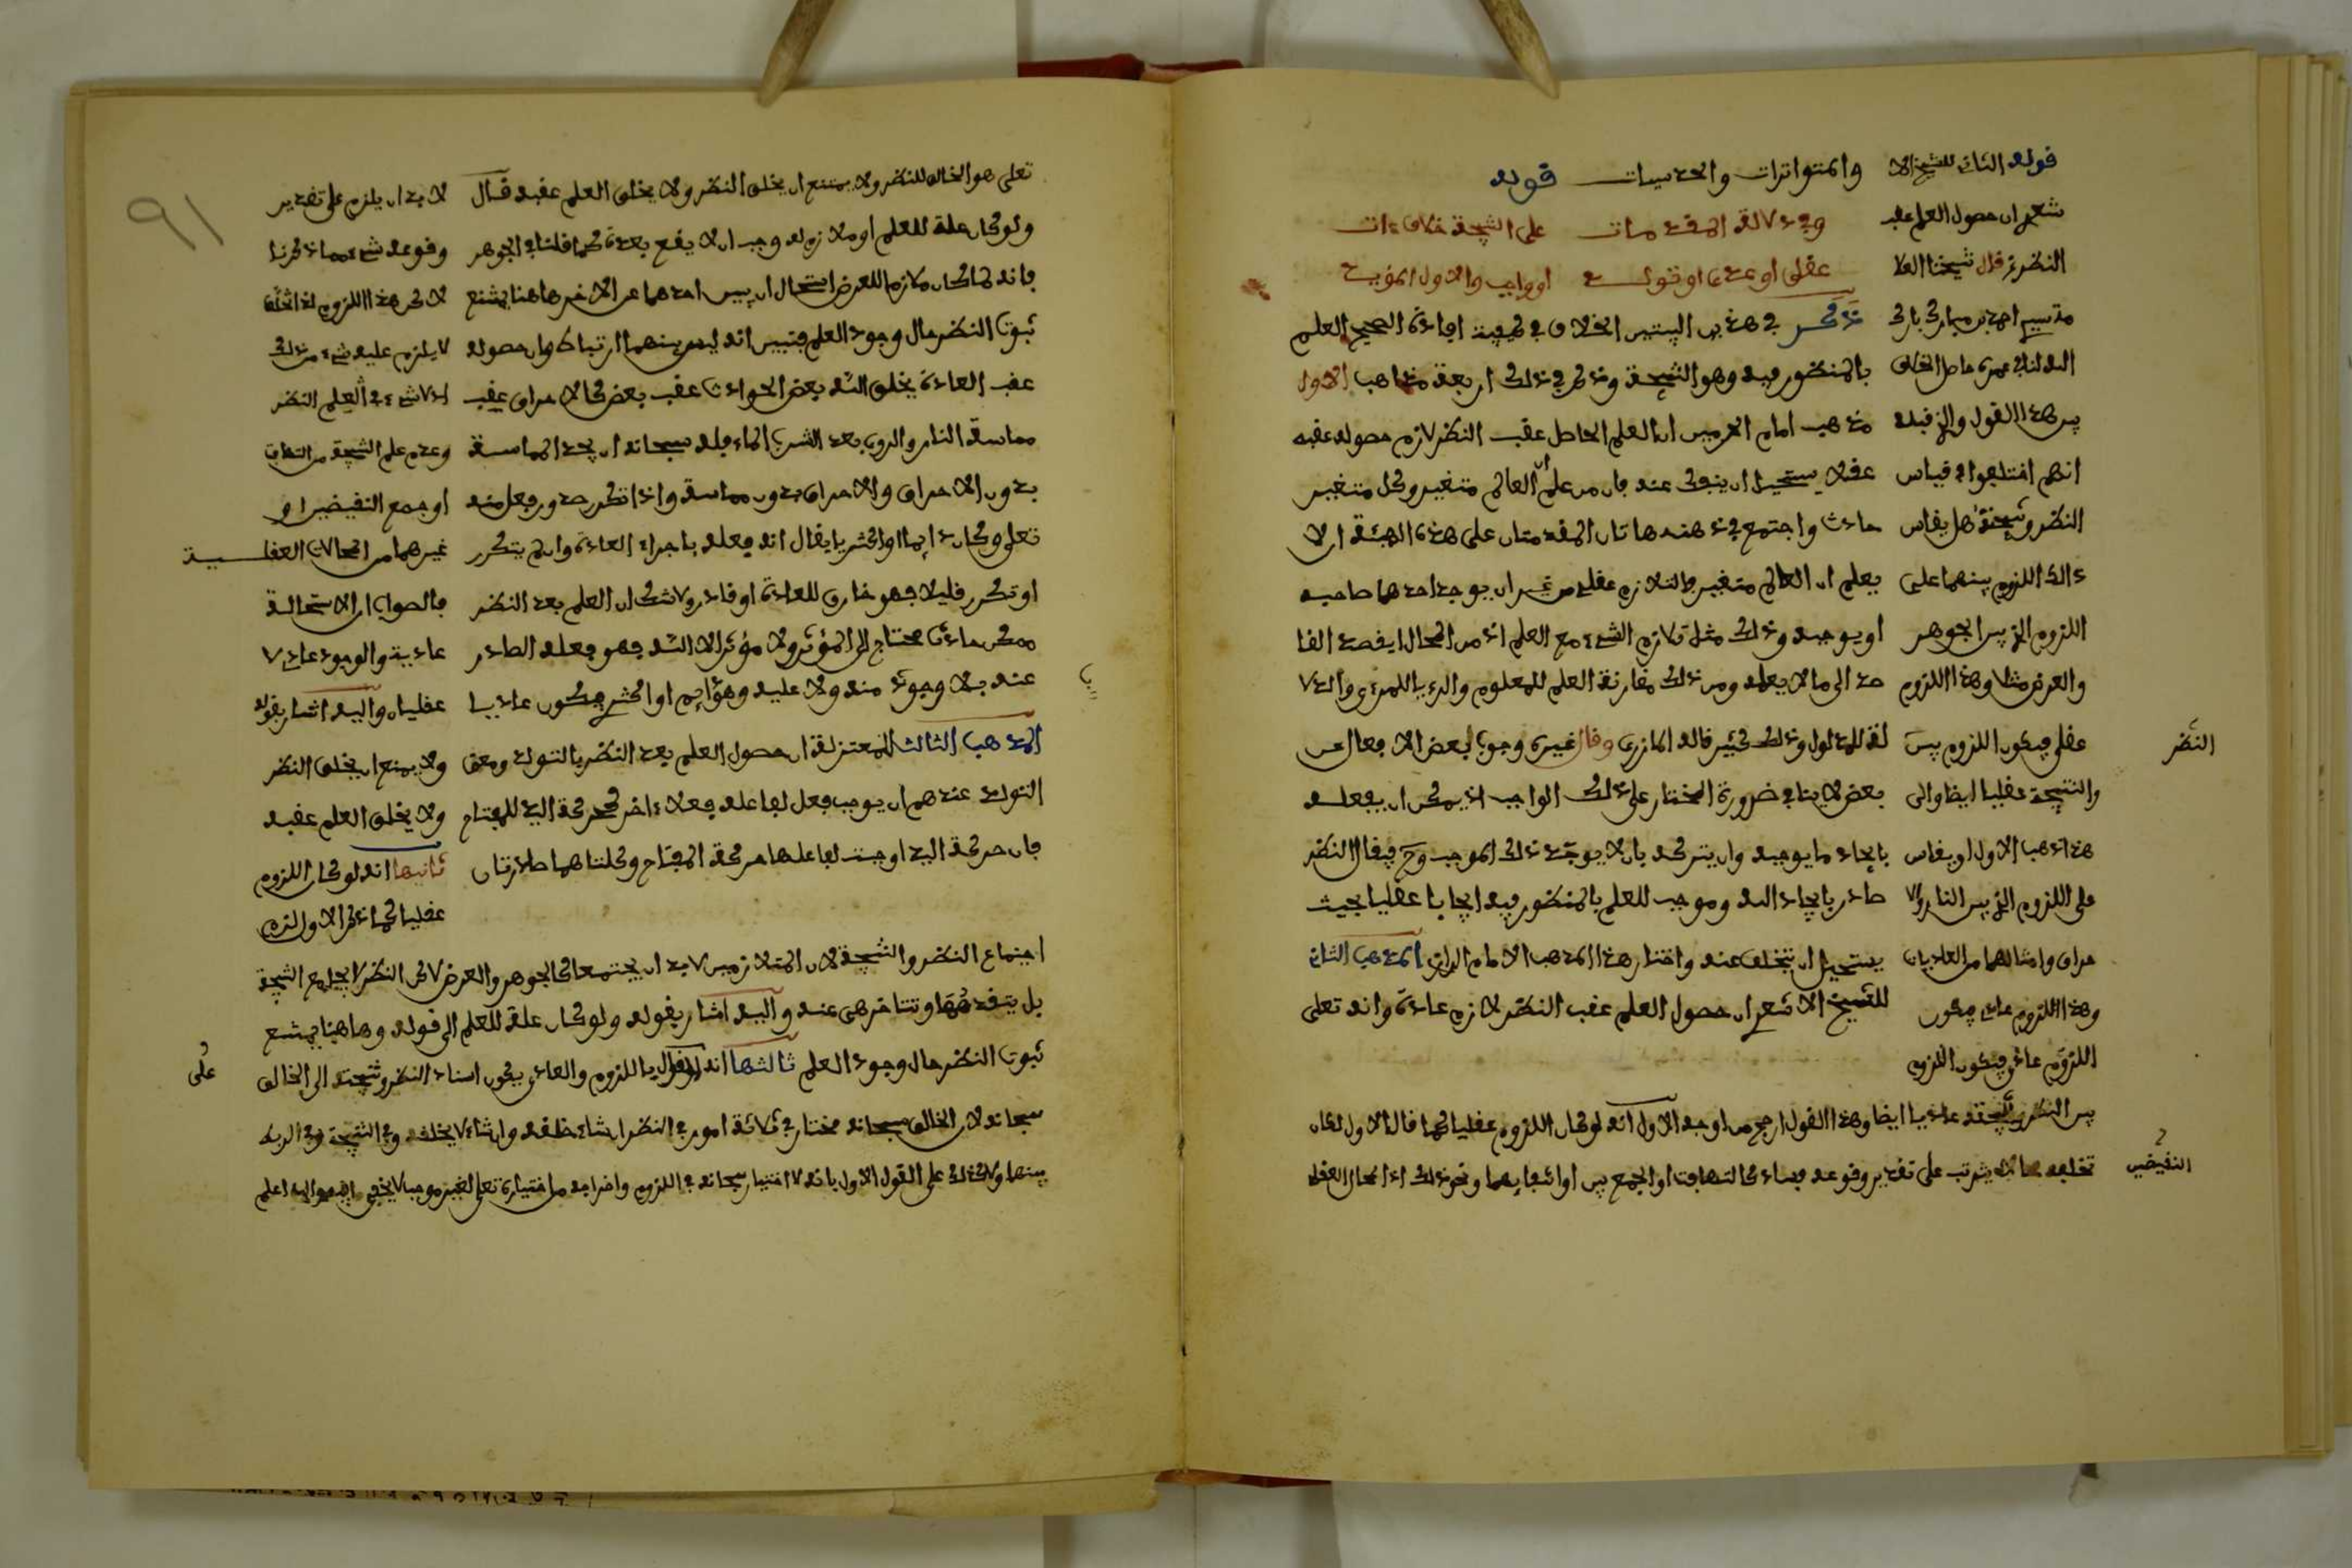 والمتواترات والحدسيات قوله
وفي دلالة المقدمات على النتيجة خلاف ءات
عقلي او عادي او تولد او واجب والاول المؤيد
ذكر في هذين البيتين الخلاف في كيفية افادة الصحيح العلم
بالمنظور فيه وهو النتيجة وذكر في ذلك اربعة مذاهب الاول
مذهب امام الحرمين ان العلم الحاصل عقب النظر لازم حصوله عقبه
عقلا يستحيل ان ينفك عنه فان من علم ان العالم متغير وكل متغير
حادث واجتمع في ذهنه هاتان المقدمتان على هذه الهيئة ان لا
يعلم ان العالم متغير والتلازم عقلي من غير ان يوجد احدهما صاحبه
او يوجبه وذلك مثل تلازم الشيء مع العلم اذ من المحال ايقصد القا
صد الى ما لا يعلمه ومن ذلك مقارنة العلم للمعلوم والرءيا للمرءي والدلا
لة للمدلول وذلك كثير قاله المازري وقال غيره وجوب بعض الافعال عن
بعض لا ينافي ضرورة المختار على ذلك الواجب اذ يمكن ان يفعله
بايجاد ما يوجبه وان يتركه بان لا يوجد ذلك الموجب وح فيقال النظر
صادر بايجاد الله وموجب للعلم بالمنظور فيه ايجابا عقليا بحيث
يستحيل ان يتخلف عنه واختار هذا المذهب الامام الرازي المذهب الثاني
للشيخ الاشعري ان حصول العلم عقب النظر لازم عادة وانه تعلى
قوله الثاني للشيخ الا
شعري ان حصول العلم عقب
النظر قال شيخنا العلا
مة سيدي احمد بن مبارك بارك
الله لنا في عمره حاصل الخلاف
بين هذا القول والذي قبله
انهم اختلفوا في قياس
النظر ونتيجته هل يقاس
ذالك اللزوم بينهما على
اللزوم الذي بين الجوهر
والعرض مثلا وهذا اللزوم
عقلي فيكون اللزوم بين
النظر
والنتيجة عقليا ايضا والى
هذا ذهب الاول او يقاس
على اللزوم الذي بين النار والا
حراق وامثالهما من العاديات
وهذا اللزوم عادي فيكون
اللزوم عادي فيكون اللزوم
بين النظر ونتيجته عاديا ايضا وهذا القول ارجح من اوجه الاول انه لو كان اللزوم عقليا كما قال الاول لكان
تخلفه محالا يترتب على تقدير وقوعه فساد كالتهافت او الجمع بين او ارتفاعهما ونحو ذلك اذ المحال العقلي
النقيضين
تعلى هو الخالق للنظر ولا يمتنع ان يخلق النظر ولا يخلق العلم عقبه قال
ولو كان علة للعلم او ملازم له وجب ان لا يقع بعده كما قلنا في الجوهر
فانه لما كان ملازما للعرض استحال ان يبين احدهما عن الاخر هاهنا يمتنع
ثبوت النظر حال وجود العلم فتبين انه ليس بينهما ارتباط وان حصوله
عقب العادة يخلق الله بعض الحوادث عقب بعض كالاحراق عقب
مماسة النار والروي بعد الشرب الماء فله سبحانه ان يوجد المماسة
بدون الاحراق والاحراق بدون مماسة واذا تكرر صدور فعل منه
تعلى وكان دايما او اكثريا يقال انه فعله باجراء العادة وان لم يتكرر
او تكرر قليلا فهو خارق للعادة او نادر ولا شك ان العلم بعد النظر
ممكن حادث محتاج الى المؤثر ولا مؤثر الا الله فهو فعله الصادر
عنه بلا وجوب منه ولا عليه وهو دايم او اكثري فيكون عاديا
المذهب الثالث للمعتزلة ان حصول العلم بعد النظر بالتولد ومعنى
التولد عندهم ان يوجب فعل لفاعله فعلا ءاخر كحركة اليد للمفتاح
فان حركة اليد اوجبت لفاعلها حركة المفتاح وكلتاهما صادرتان
لا بد ان يلزم على تقدير
وقوعه شيء مما ذكرنا
لاكن هذا اللزوم اذا تخلف
لا يلزم عليه شيء من ذلك
اذ لا شيء في العلم النظر
وعدم علم النتيجة من التهافت
او جمع النقيضين او
غيرهما من المحالات العقلية
فالصواب ان الاستحالة
عادية والوجود عادي لا
عقليان واليه اشار بقوله
ولا يمتنع ان يخلق النظر
ولا يخلق العلم عقبه
ثانيها انه لو كان اللزوم
عقليا كما ذكر الاول لزم
اجتماع النظر والنتيجة لان المتلازمين لا بد ان يجتمعا كالجوهر والعرض لاكن النظر لا يجامع النتيجة
بل يتقدمها وتتاخر هي عنه واليه اشار بقوله ولو كان علة للعلم الى قوله وهاهنا يمتنع
ثبوت النظر حال وجود العلم ثالثها انه اللزوم والعادي يكون اسناد النظر ونتيجته الى الخالق
سبحانه لان الخالق سبحانه مختار في ثلاثة امور في النظر ان شاء خلقه وان شاء لا يخلقه وفي النتيجة وفي الربط
بينهما ولا كذلك على القول الاول بانه لا اختيار سبحانه في اللزوم واخراجه من اختياره تعلى لغير موجب لا يخفى والله اعلم
على
٩١